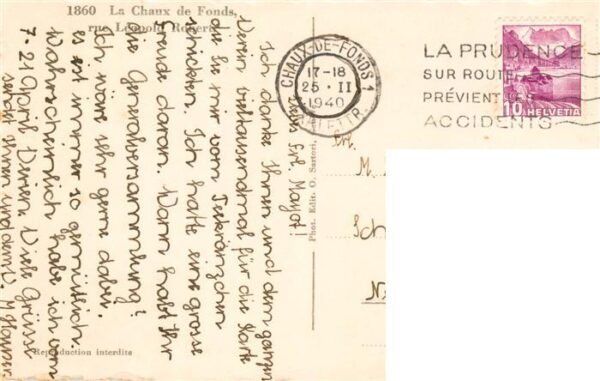 1860 La Chaux de Fonds,
rue Léopold Robert
CHAUX-DE-FONDS 1
17-18
25 · II
1940
LA PRUDENCE
SUR ROUTE
PRÉVIENT LES
ACCIDENTS
10 HELVETIA
Frl.
M.
Sch
N
Phot. Edit. O. Sartori,
Liebes Frl.
Ich danke Ihnen und dem ganzen
Verein, vieltausendmal für die Karte
die Ihr mir vom Teekränzchen
schicktet. Ich hatte eine grosse
Freude daran. Wann habt Ihr
die Generalversammlung?
Ich wäre sehr gerne dabei.
es ist immer so gemütlich.
Wahrscheinlich habe ich vom
7.-21 April Ferien. Viele Grüsse
sendet Ihnen und dem V. M Hauser
Reproduction interdite